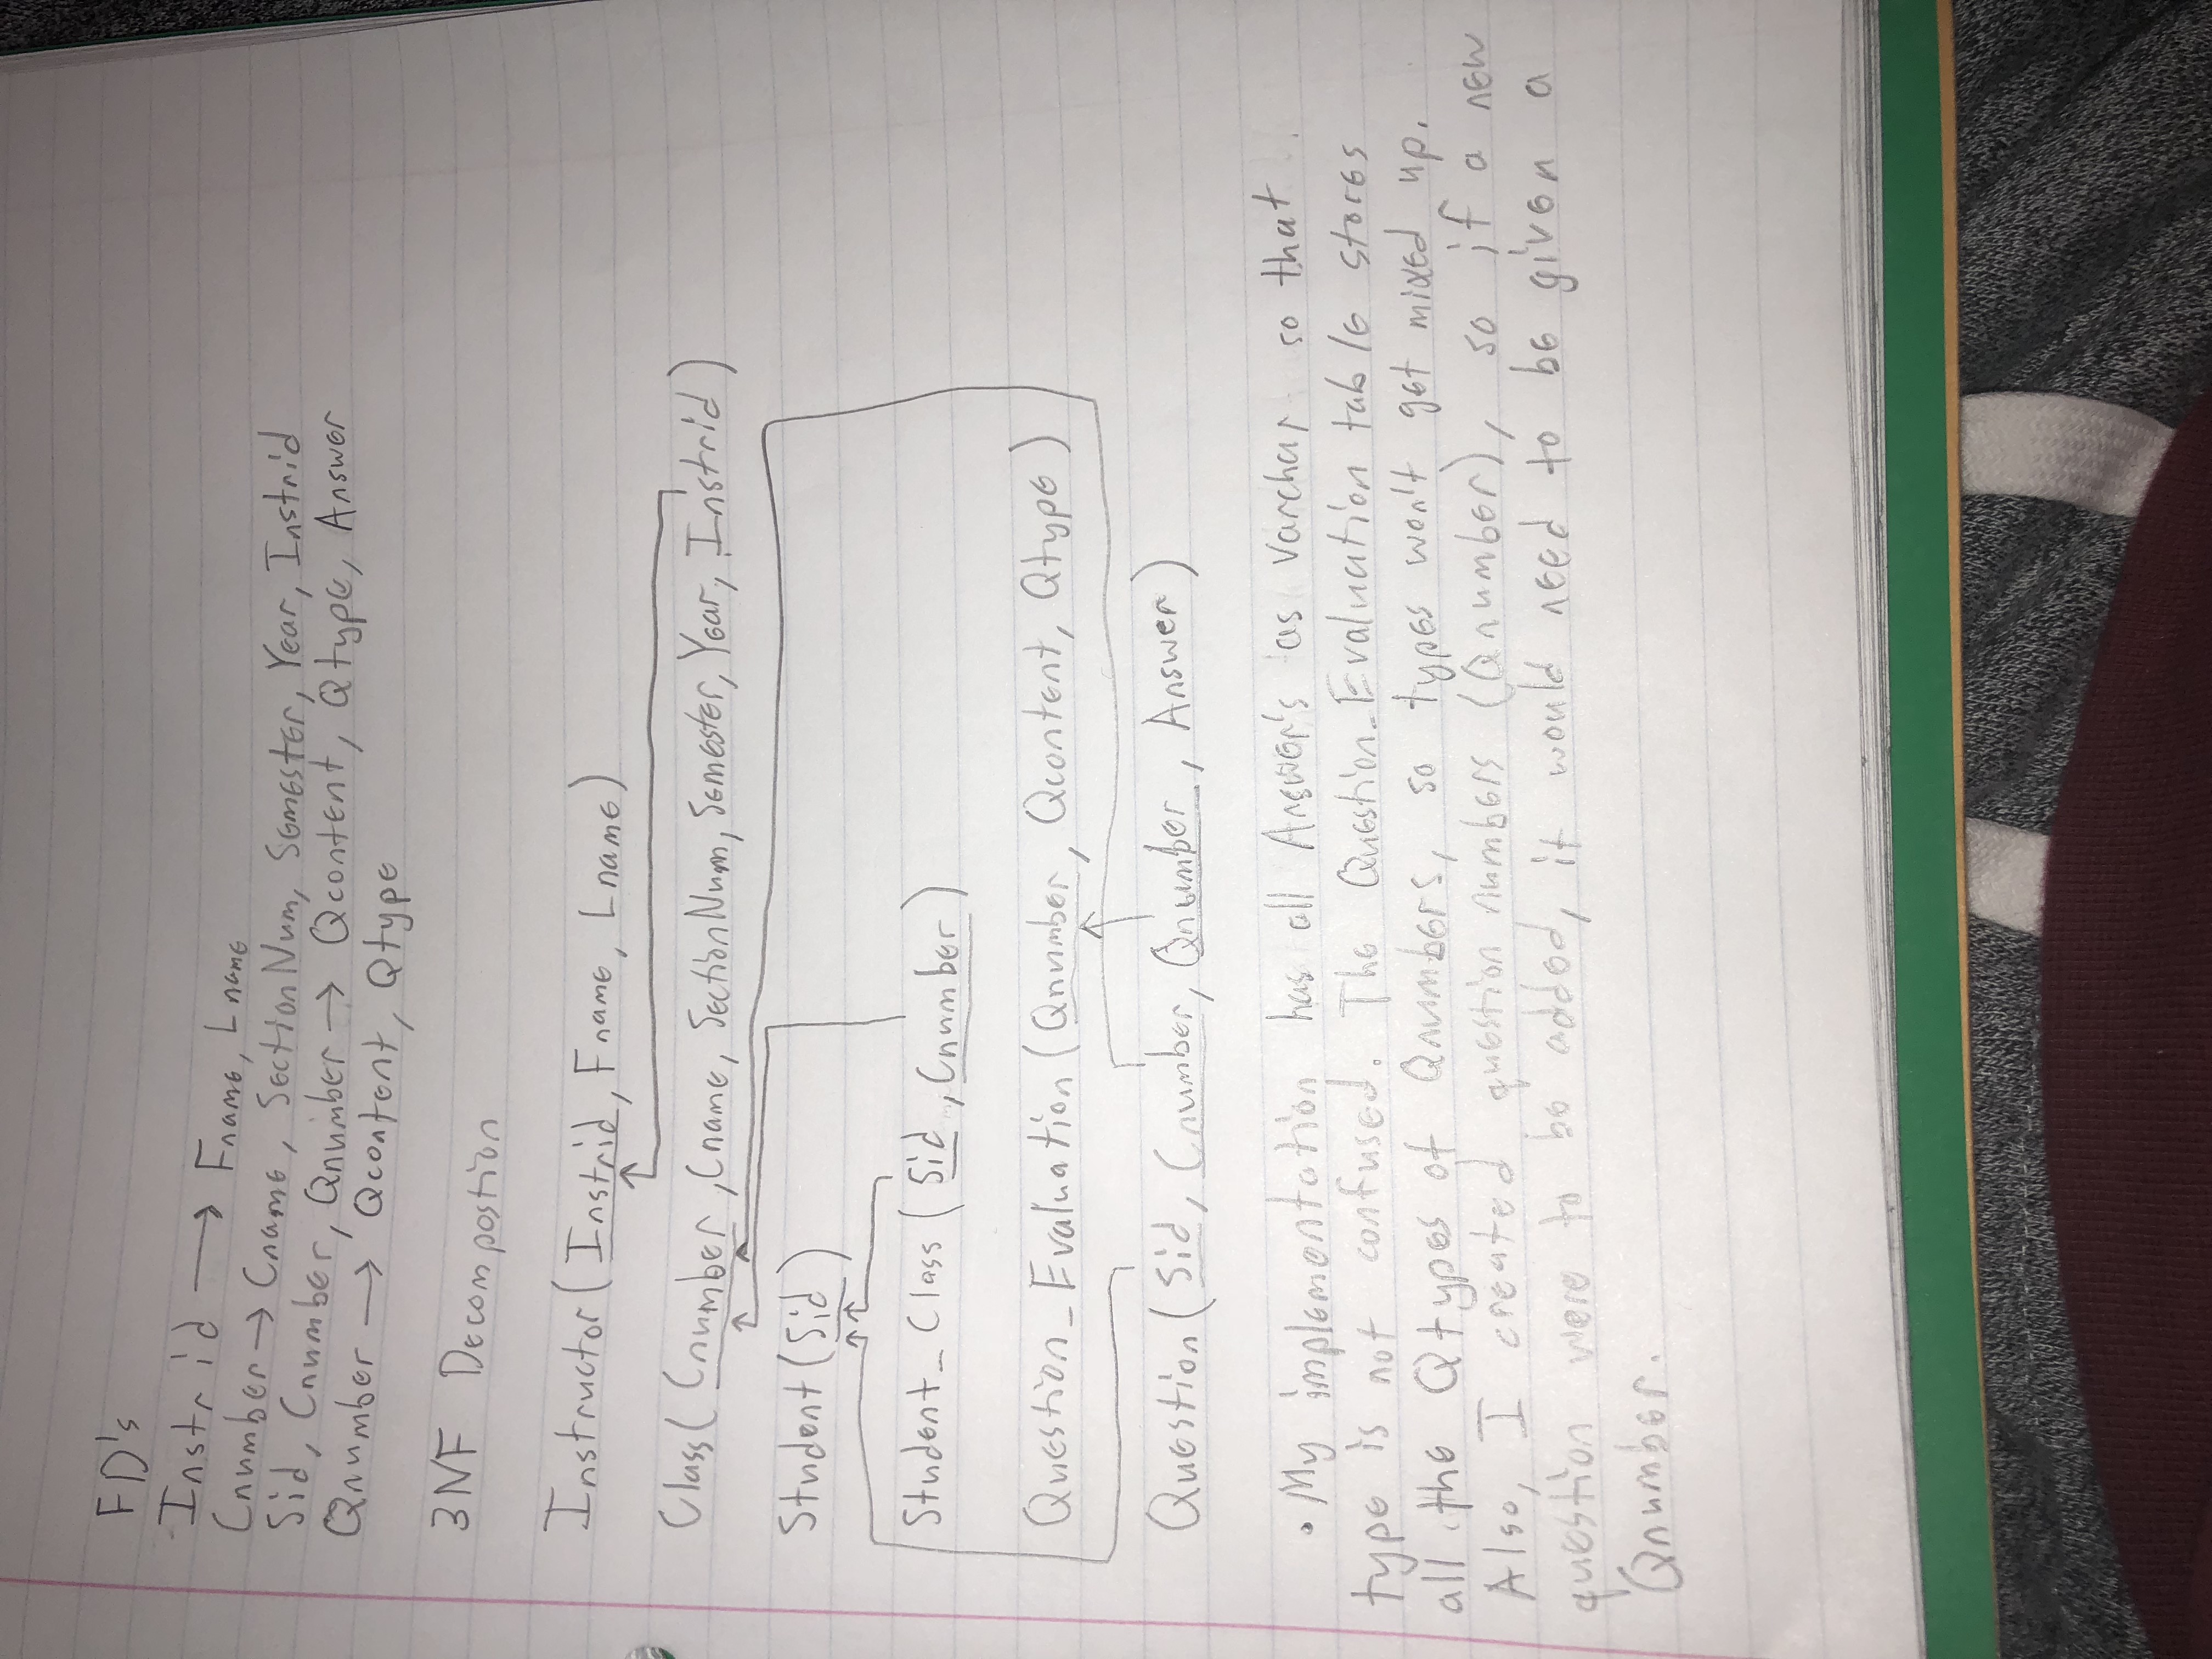 FD's
Instrid → Fname, Lname
Cnumber → Cname, SectionNum, Semester, Year, Instrid
Sid, Cnumber, Qnumber → Qcontent, Qtype, Answer
Qnumber → Qcontent, Qtype
3NF Decompostion
Instructor (Instrid, Fname, Lname)
Class (Cnumber, Cname, SectionNum, Semester, Year, Instrid)
Student (Sid)
Student_Class (Sid, Cnumber)
Question_Evaluation (Qnumber, Qcontent, Qtype)
Question (Sid, Cnumber, Qnumber, Answer)
• My implementation has all Answer's as varchar so that
type is not confused. The Question_Evaluation table stores
all the Qtypes of Qnumbers, so types won't get mixed up.
Also, I created question numbers (Qnumber), so if a new
question were to be added, it would need to be given a
Qnumber.